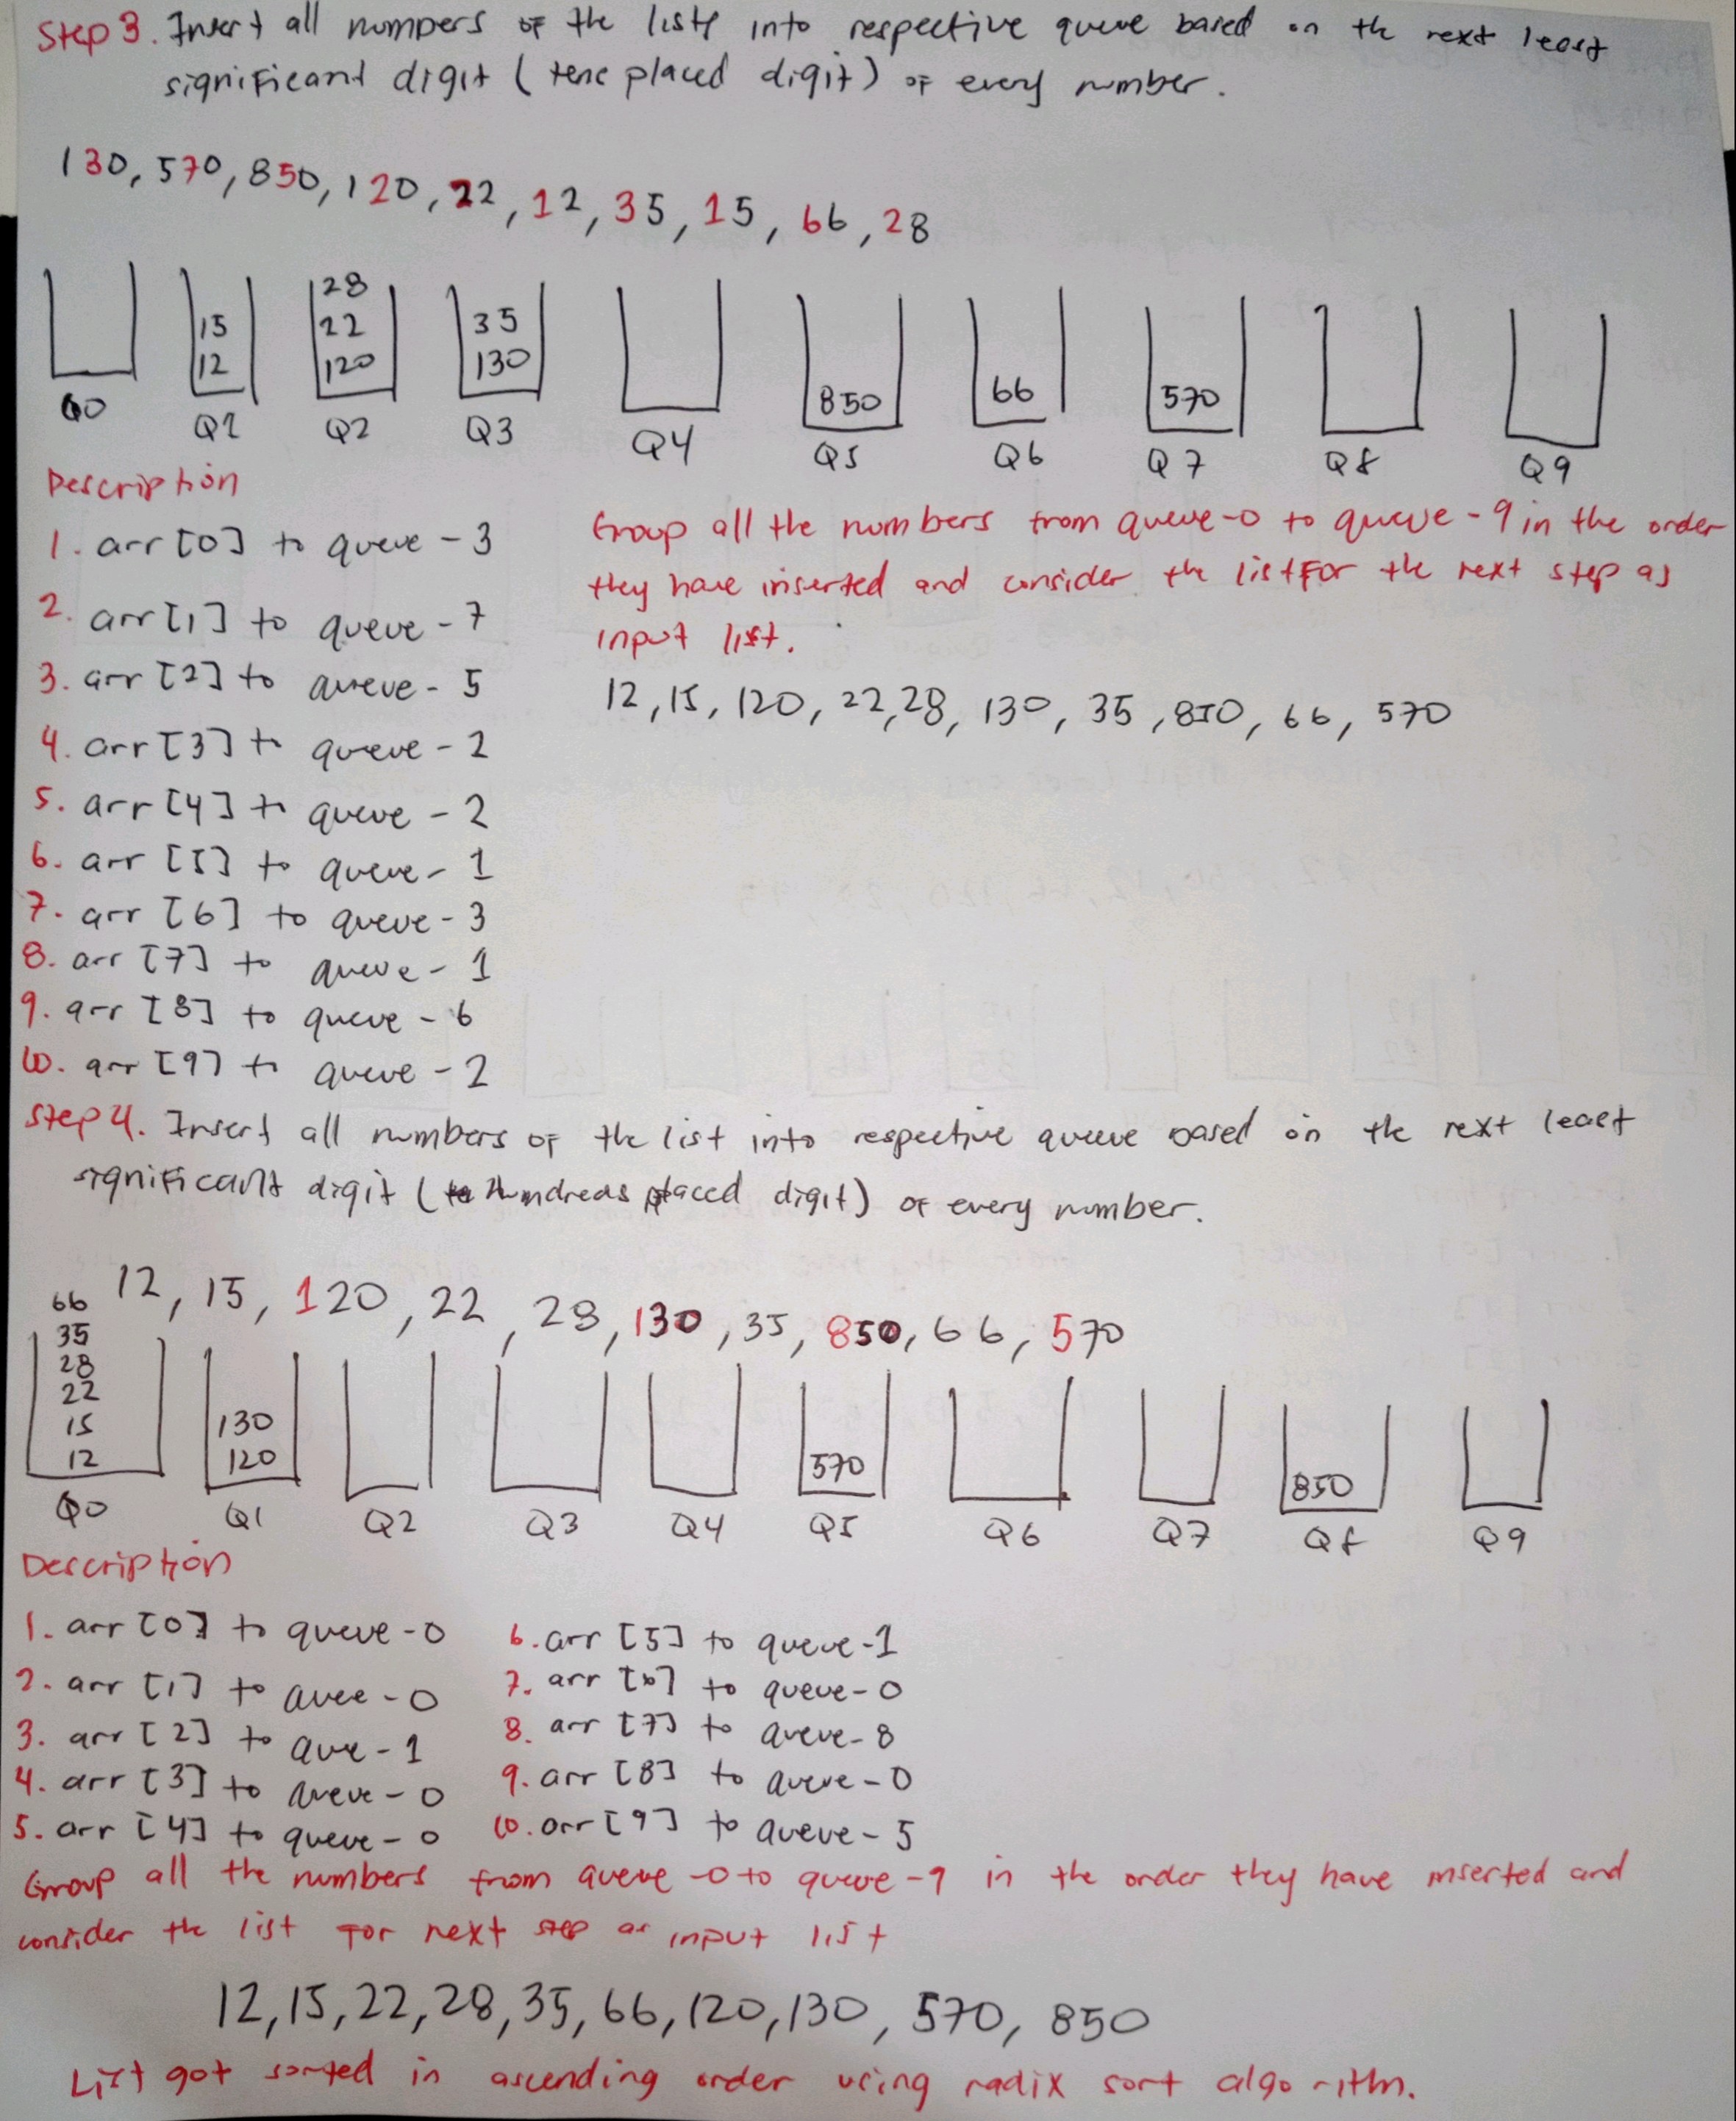 Step 3. Insert all numpers of the lists into respective queue based on the next least
significant digit (tens placed digit) of every number.
130, 570, 850, 120, 22, 12, 35, 15, 66, 28
28
15 22 35
12 120 130 850 66 570
Q0 Q1 Q2 Q3 Q4 Q5 Q6 Q7 Q8 Q9
Description
1. arr [0] to queue - 3
2. arr [1] to queue - 7
3. arr [2] to queue - 5
4. arr [3] to queue - 2
5. arr [4] to queue - 2
6. arr [5] to queue - 1
7. arr [6] to queue - 3
8. arr [7] to queue - 1
9. arr [8] to queue - 6
10. arr [9] to queue - 2
Group all the numbers from queue-0 to queue - 9 in the order
they have inserted and consider the list for the next step as
input list.
12, 15, 120, 22, 28, 130, 35, 850, 66, 570
Step 4. Insert all numbers of the list into respective queue based on the next least
significant digit (Hundreds placed digit) of every number.
12, 15, 120, 22, 28, 130, 35, 850, 66, 570
66
35
28
22
15 130
12 120 570 850
Q0 Q1 Q2 Q3 Q4 Q5 Q6 Q7 Q8 Q9
Description
1. arr [0] to queue - 0
2. arr [1] to quee - 0
3. arr [2] to que - 1
4. arr [3] to queue - 0
5. arr [4] to queue - 0
6. arr [5] to queue - 1
7. arr [6] to queue - 0
8. arr [7] to queue - 8
9. arr [8] to queue - 0
10. arr [9] to queue - 5
Group all the numbers from queue -0 to queue -9 in the order they have inserted and
consider the list for next step as input list
12, 15, 22, 28, 35, 66, 120, 130, 570, 850
List got sorted in ascending order using radix sort algorithm.